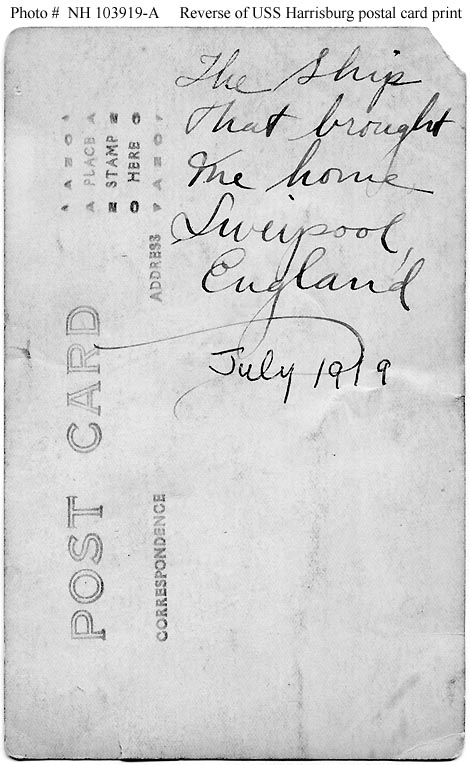 Photo #  NH 103919-A     Reverse of USS Harrisburg postal card print
The Ship
That brought
me home
Liverpool,
England
July 1919
POST CARD
CORRESPONDENCE
ADDRESS
AZO
PLACE
STAMP
HERE
AZO